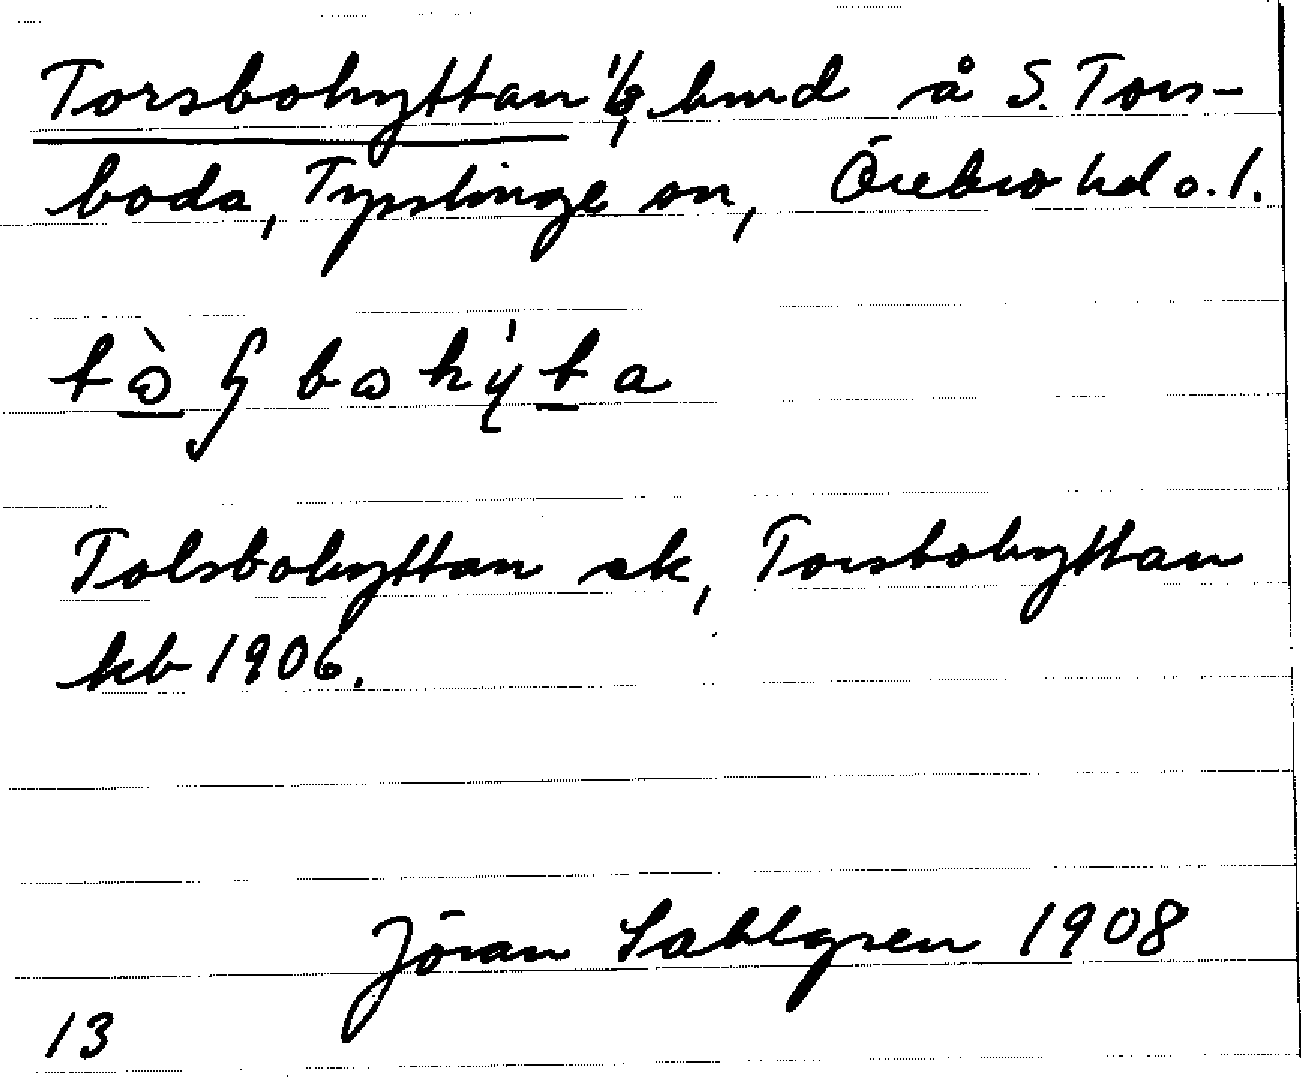 Torsbohyttan 1/8, hmd å S. Tors-
boda, Tysslinge sn, Örebro hd o. l.
Tolsbohyttan sk, Torsbohyttan
kb 1906.
Jöran Sahlgren 1908
13